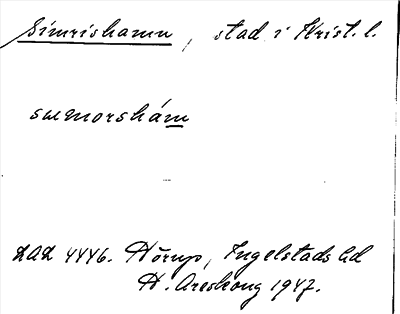 Simrishamn, stad i Krist. l.
summorshám
LAL 4446. Hörup, Ingelstads hd
H. Areskoug 1947.